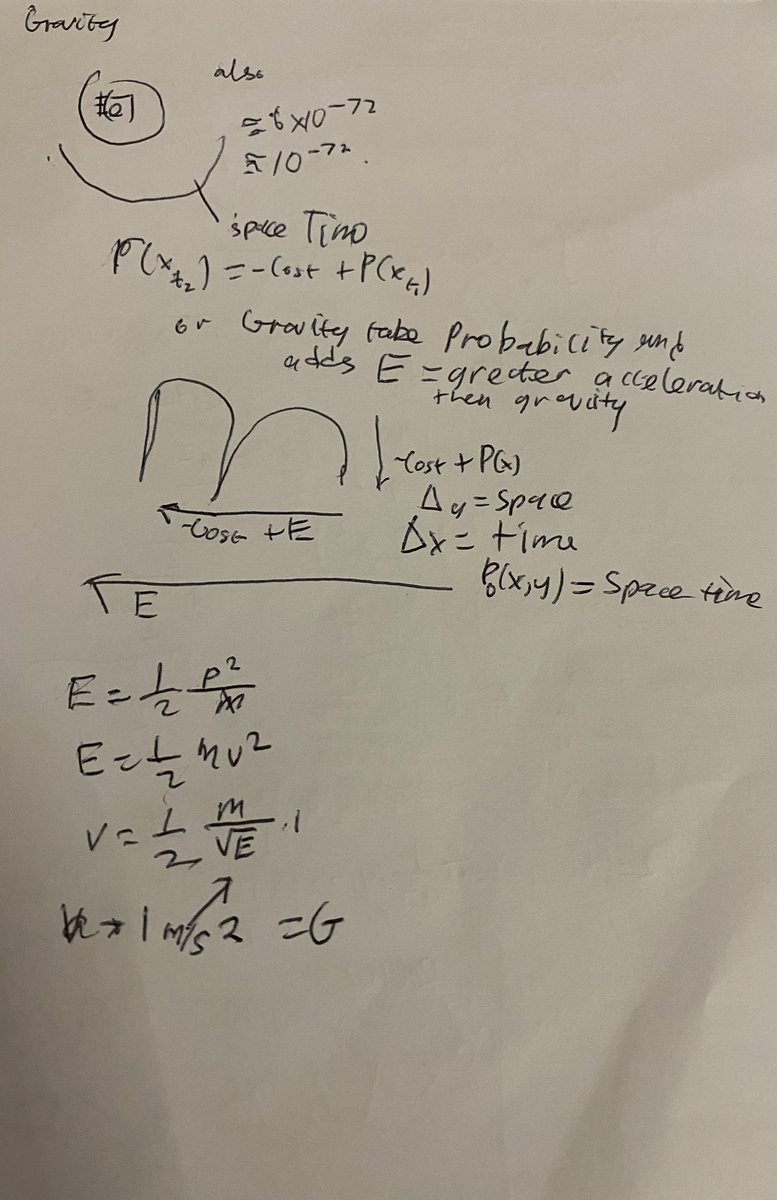 Gravity
also
≈ 6 x10^-72
≈ 10^-72.
space Time
P(x_t2) = -Cost + P(x_t1)
or Gravity take Probability and
adds E = greater acceleration
then gravity
-Cost + P(x)
Δy = space
-Cost + E
Δx = time
(x,y) = Space time
E
E = 1/2 p^2/m
E = 1/2 mv^2
v = 1/2 m/√E .1
→ 1 m/s 2 = G